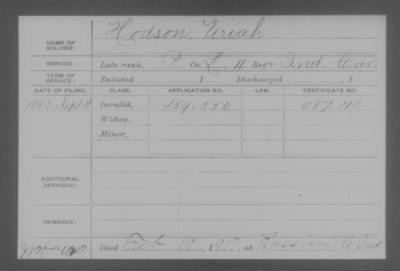 Hodson, Uriah
NAME OF SOLDIER:
SERVICE: Late rank, P Co. L, 11 Reg't Ind Cav.
TERM OF SERVICE: Enlisted , 1 Discharged , 1
DATE OF FILING. CLASS. APPLICATION NO. LAW. CERTIFICATE NO.
1883 Sept Invalid, 487.110
Widow,
Minor,
ADDITIONAL SERVICES:
REMARKS:
Died Oct 19, 1917, at Russiaville Ind